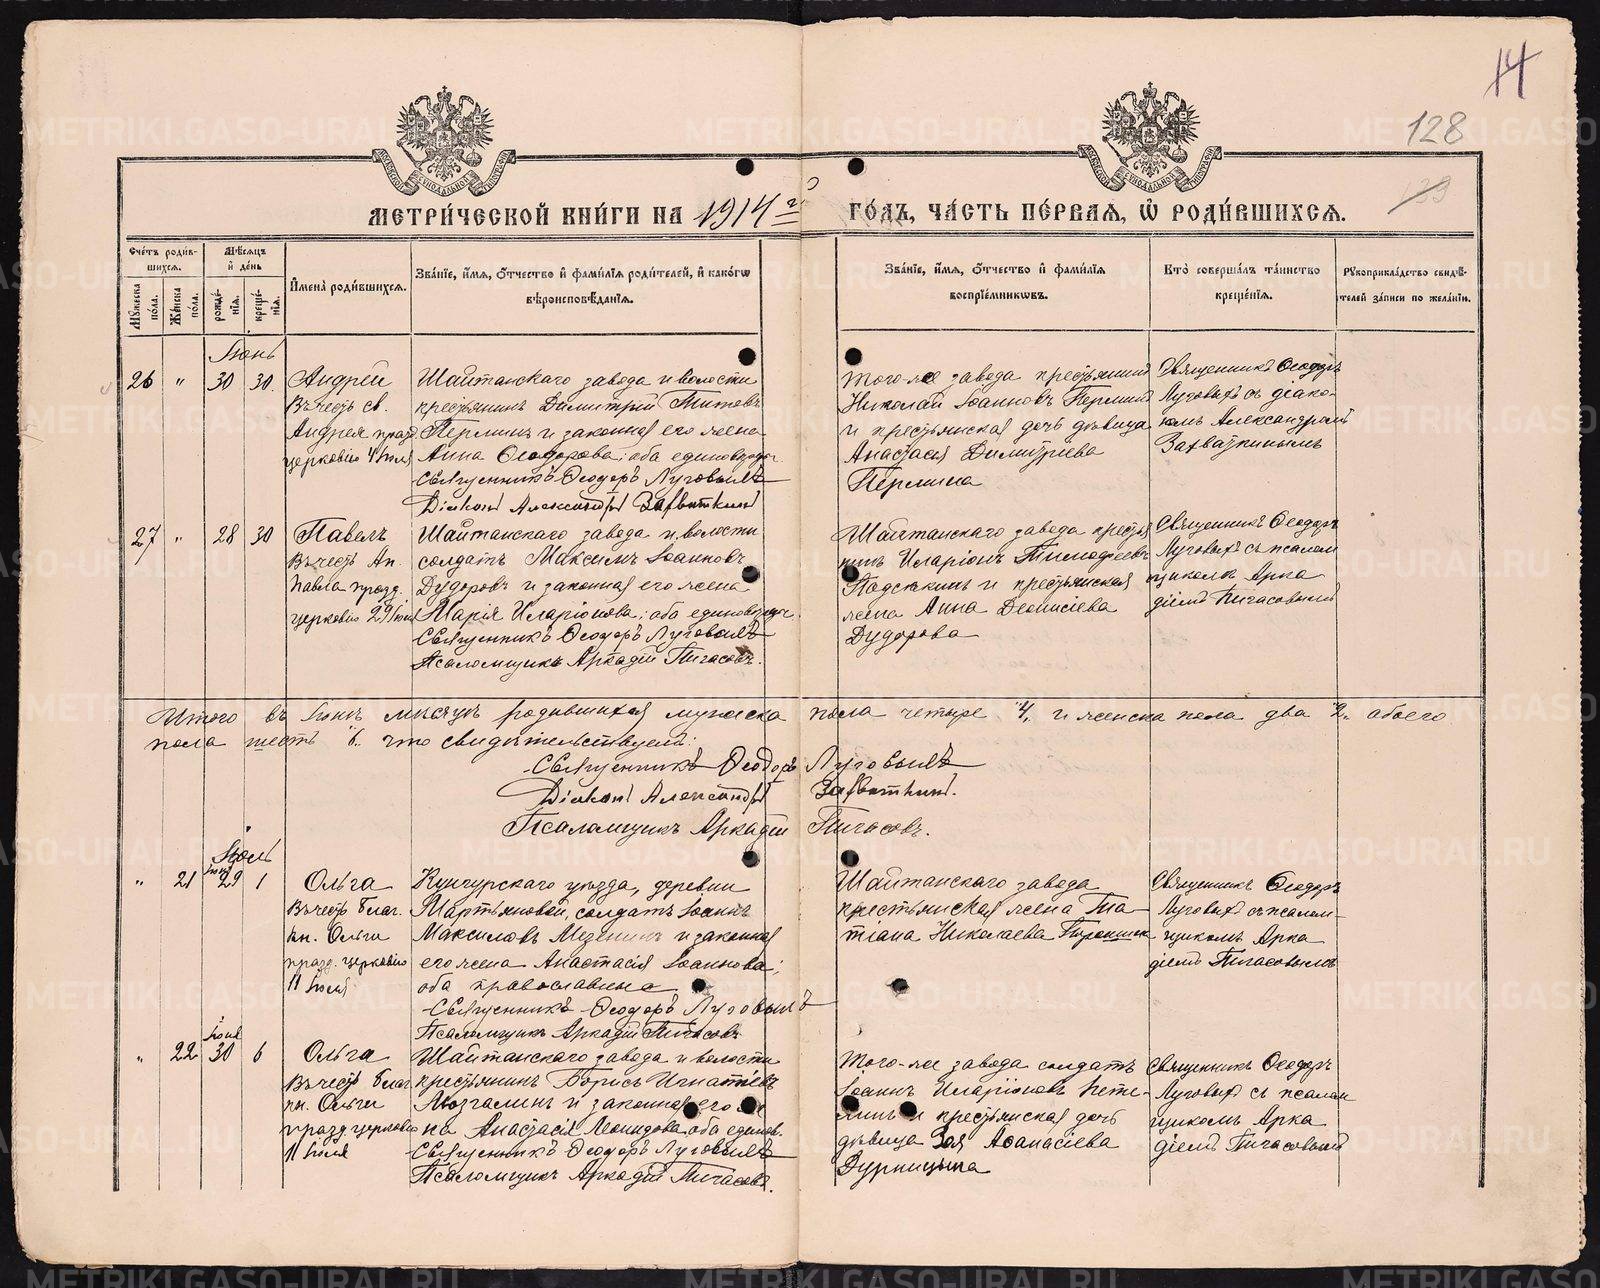 14
128
139
МЕТРИ́ЧЕСКОЙ КНИ́ГИ НА 1914 й ГО́ДЪ, ЧА́СТЬ ПЕ́РВАЯ, Ѡ҆ РОДИ́ВШИХСЯ.
Сче́тъ роди́вшихся.
Му́жеска по́ла.
Же́нска по́ла.
Мѣ́сяцъ и҆ де́нь
рожде́нїя.
креще́нїя.
И҆мена̀ роди́вшихся.
Зва́нїе, и҆́мя, ѻ҆́тчество и҆ фами́лїя роди́телей, и҆ како́гѡ
вѣроисповѣ́данїя.
Зва́нїе, и҆́мя, ѻ҆́тчество и҆ фами́лїя
воспрїе́мникѡвъ.
Кто̀ соверша́лъ та́инство
креще́нїя.
Рукоприкла́дство свидѣ́-
телей за́писи по жела́нїю.
Іюнь
26 " 30 30
Андрей
Въ честь св.
Андрея празд.
церковію 4 Іюля
Шайтанскаго завода и волости
крестьянинъ Димитрій Титовъ
Пермин и законная его жена
Анна Ѳеодорова; оба единовѣрч.
Священникъ Ѳеодоръ Луговыхъ
Діаконъ Александръ Завьяткинъ
Того-же завода крестьянинъ
Николай Іоанновъ Пермин
и крестьянская дочь дѣвица
Анастасія Димитріева
Пермина
Священникъ Ѳеодоръ
Луговыхъ съ діако-
номъ Александромъ
27 " 28 30
Павелъ
Въ честь Ап.
Павла празд.
церковію 29 Іюня
Шайтанскаго завода и волости
солдатъ Максимъ Іоанновъ
Дудоровъ и законная его жена
Марія Иларіонова; оба единовѣрч.
Священникъ Ѳеодоръ Луговыхъ
Псаломщикъ Аркадій Пигасовъ.
Шайтанскаго завода крестья
нинъ Иларіонъ Тимоѳеевъ
и крестьянская
жена Анна Деонисіева
Дудорова
Священникъ Ѳеодоръ
Луговыхъ съ псалом
щикомъ Арка
діемъ Пигасовымъ
Итого въ Іюнѣ мѣсяцѣ родившихся мужеска пола четыре "4" и женска пола два "2" обоего
пола шесть "6" что свидѣтельствуемъ:
Священникъ Ѳеодоръ Луговыхъ
Діаконъ Александръ
Псаломщикъ Аркадій Пигасовъ.
Іюль
" 21 Іюня 29 1
Ольга
Въ честь благ.
кн. Ольги
празд. церковію
11 Іюля
Кунгурскаго уѣзда, деревни
Мартьяновой, солдатъ Іоаннъ
Максимовъ Мезенинъ и законная
его жена Анастасія Іоаннова;
оба православные
Священникъ Ѳеодоръ Луговыхъ
Псаломщикъ Аркадій Пигасовъ
Шайтанскаго завода
крестьянская жена Та-
тіана Николаева
Священникъ Ѳеодоръ
Луговыхъ съ псалом-
щикомъ Арка
діемъ Пигасовымъ
" 22 Іюня 30 6
Ольга
Въ честь благ
кн. Ольги
празд. церковію
11 Іюля
Шайтанскаго завода и волости
крестьянинъ Борисъ Игнатіевъ
Мозгалинъ и законная его же
на Анастасія Леонидова, оба единов.
Священникъ Ѳеодоръ Луговыхъ
Псаломщикъ Аркадій Пигасовъ.
Того-же завода солдатъ
Іоаннъ Иларіоновъ Пете-
линъ и крестьянская дочь
дѣвица Зоя Аѳанасіева
Дурницына
Священникъ Ѳеодоръ
Луговыхъ съ псалом
щикомъ Арка
діемъ Пигасовымъ
METRIKI.GASO-URAL.RU